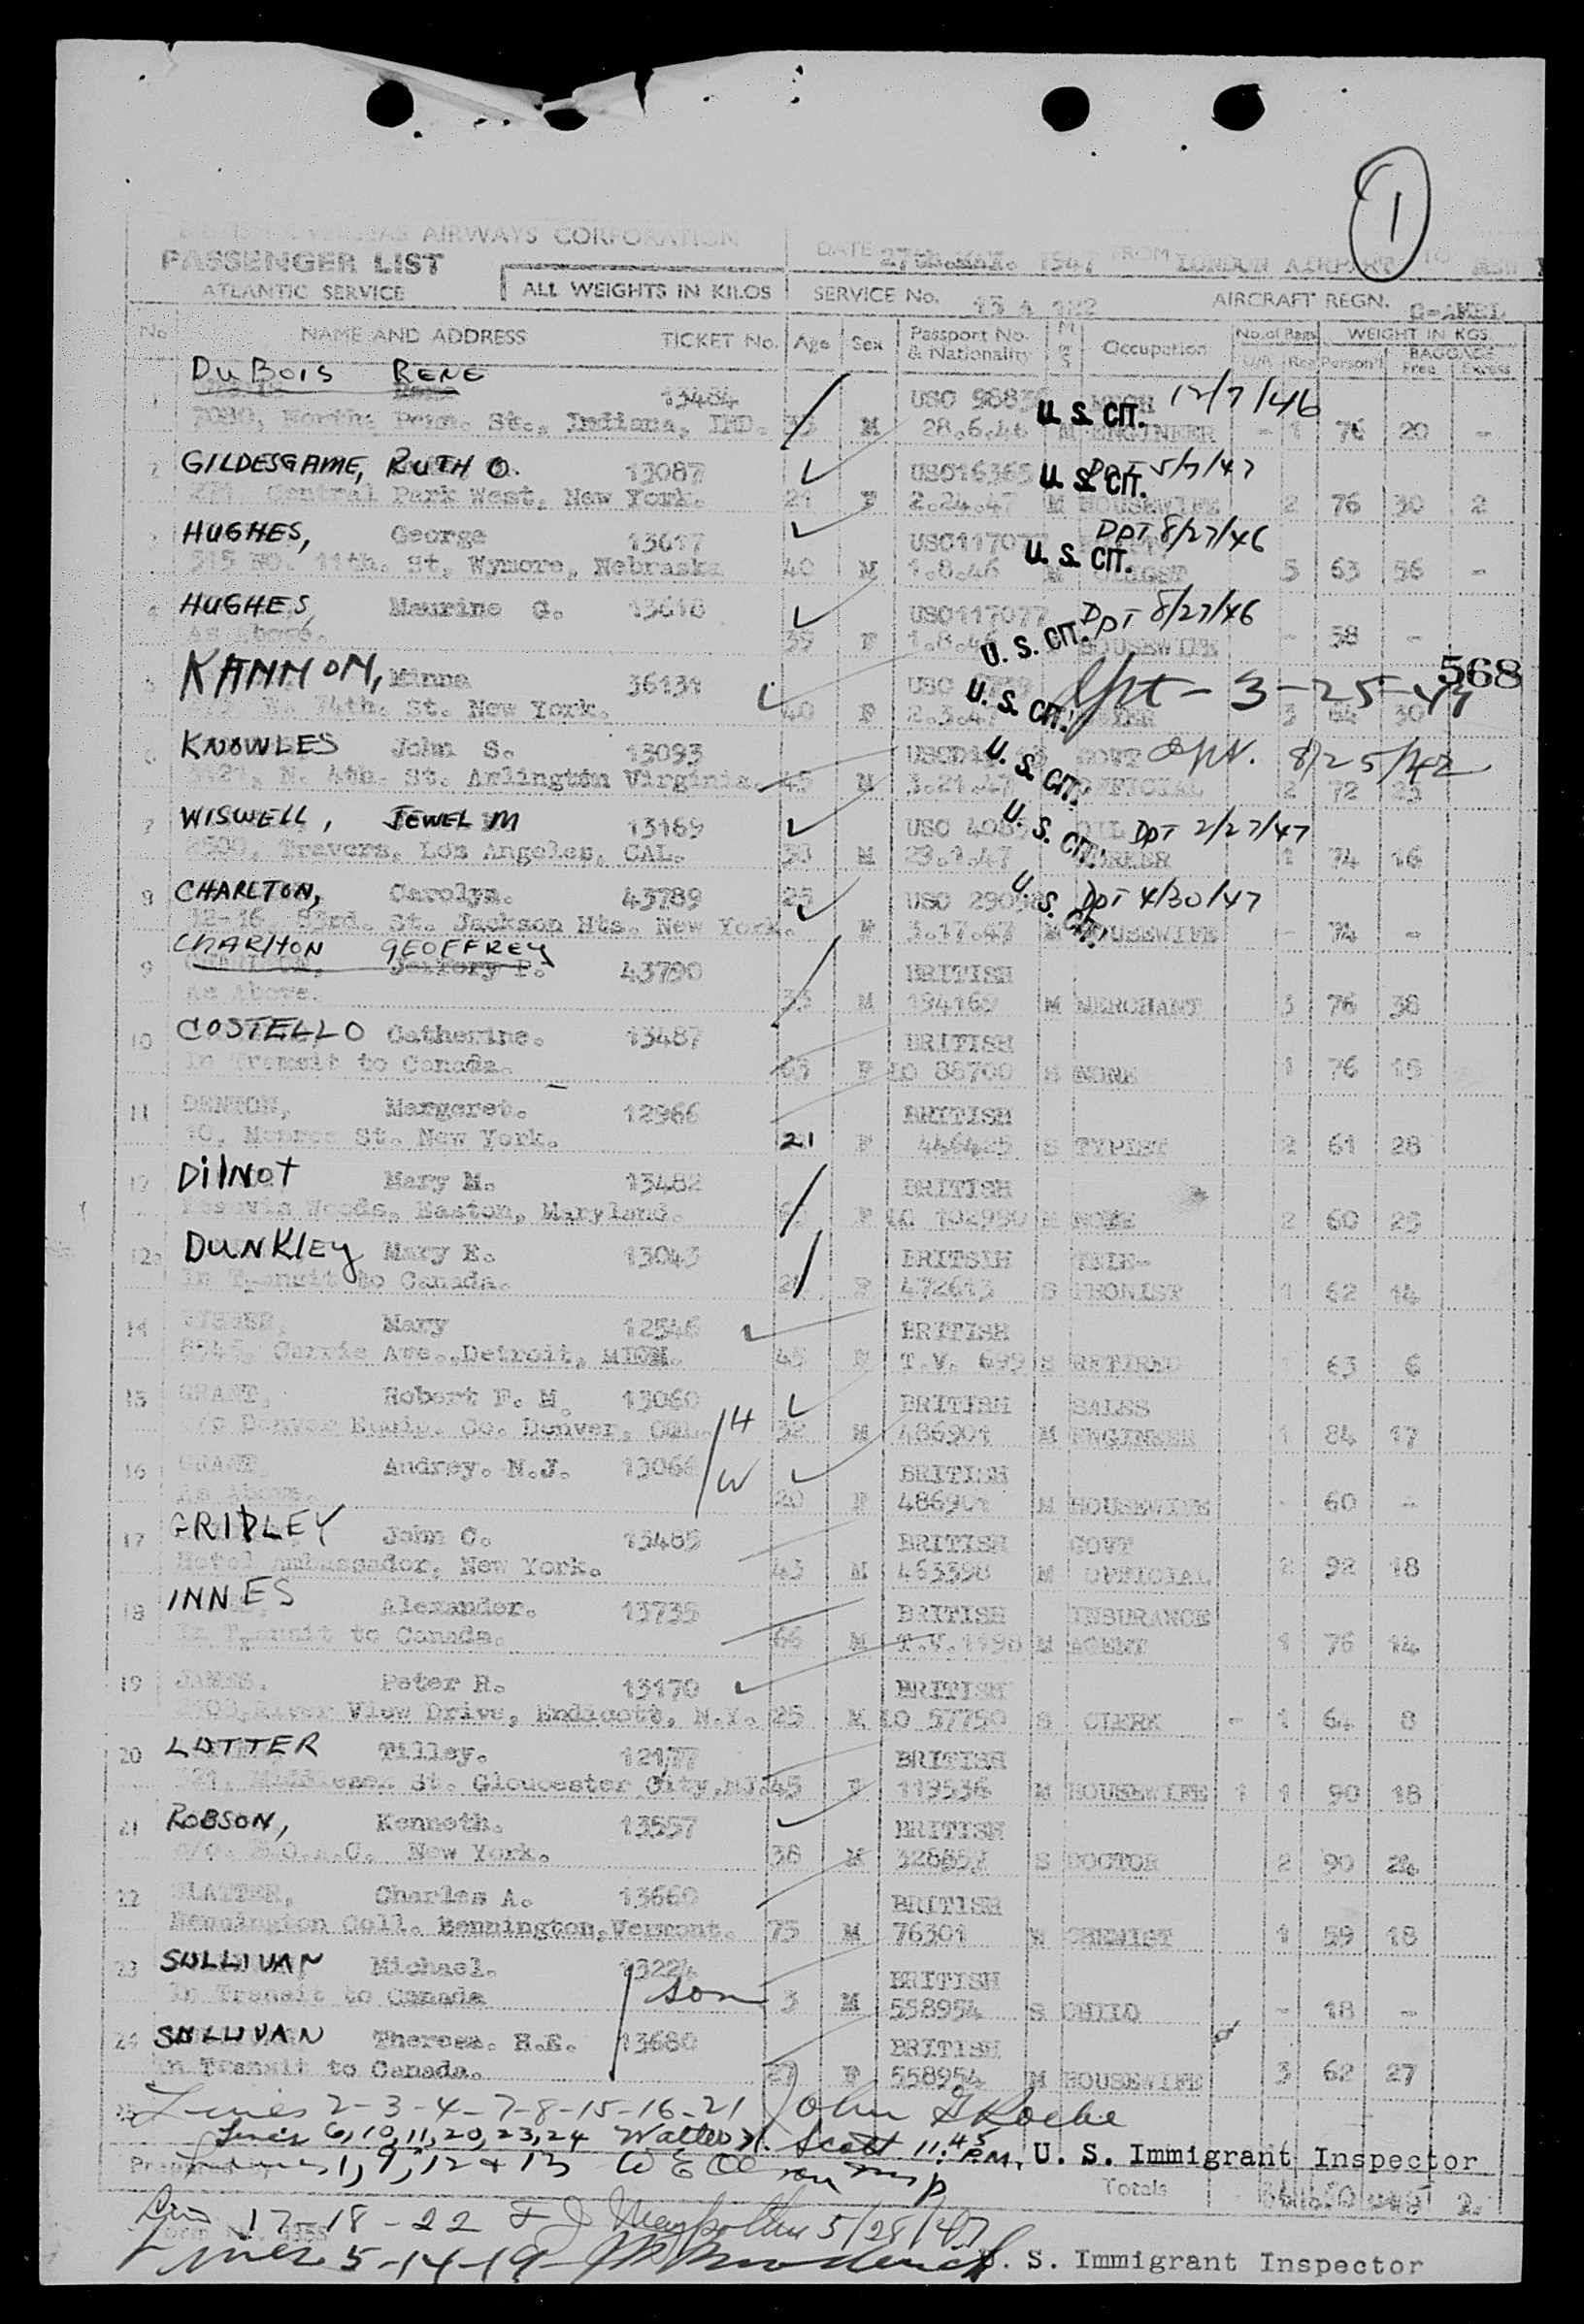 1
AIRWAYS CORPORATION
PASSENGER LIST
ATLANTIC SERVICE
ALL WEIGHTS IN KILOS
DATE 27th. 1947 FROM LONDON AIRPORT TO
SERVICE No. AIRCRAFT REGN.
No NAME AND ADDRESS TICKET No. Age Sex Passport No. & Nationality M S Occupation No. of Bags WEIGHT IN KGS
Person'l BAGGAGE Free Excess
DuBois RENE
1 13484 USC 12/7/46
North Penn. St., Indiana, IND. M 28.6.46 M U. S. CIT. ENGINEER - 1 76 20 -
2 GILDESGAME, RUTH O. 13087 5/7/47
Central Park West, New York. 21 F 2.24.47 M U. S. CIT. HOUSEWIFE 2 76 30 2
3 HUGHES, George 13617 DPT 8/27/46
515 NO. 11th. St, Wymore, Nebraska 40 M 1.8.46 U. S. CIT. 5 63 56 -
4 HUGHES, Maurine G. 13618 USC117077 DPT 8/27/46
As Above. 39 F U. S. CIT. HOUSEWIFE - 58 -
568
5 KANNON, Minna 36131 USC U. S. CIT. dpt - 3-25-47
74th. St. New York. 40 F 2.3.47 3 64 30
6 KNOWLES John S. 13093 U. S. CIT. GOVT 8/25/42
N. 4th. St. Arlington Virginia. 45 M 3.21.47 OFFICIAL 2 72 23
7 WISWELL, JEWEL M 13169 USC U. S. CIT. OIL DPT 2/27/47
2500, Travers, Los Angeles, CAL. 33 M WORKER 1 74 16
8 CHARLTON, Carolyn. 43789 25 USC U. S. CIT. DPT 4/30/47
83rd. St. Jackson Hts. New York. F 3.17.47 HOUSEWIFE - 74 -
CHARLTON GEOFFREY
9 43790 BRITISH
As Above. 33 M 194169 M MERCHANT 3 76 38
10 COSTELLO Catherine. 13487 BRITISH
In Transit to Canada. 63 F LO 88700 S NONE 1 76 15
11 DENTON, Margaret. 12966 BRITISH
10, Monroe St. New York. 21 F 446425 S TYPIST 2 61 28
12 DilNot Mary M. 13482 BRITISH
Woods. Easton, Maryland. F LO 102990 NONE 2 60 25
DUNKLEy Mary E. 13043 BRITSIH TELE-
In Transit to Canada. F 472613 S PHONIST 1 62 14
14 Mary 12546 BRITISH
Carrie Ave., Detroit, MICH. 45 T.V. 699 S RETIRED 63 6
15 GRANT, Robert F. M. 13060 H BRITISH SALES
c/o Denver Equip. Co. Denver, COL. 32 M 486901 M ENGINEER 1 84 17
16 GRANT, Audrey. N.J. W BRITISH
As Above. 20 F 486901 M HOUSEWIFE - 60 -
17 GRIDLEY John O. 13485 BRITISH GOVT
Hotel Ambassador, New York. 43 M 463398 M OFFICIAL 2 92 18
18 INNES Alexander. 13735 BRITISH INSURANCE
In Transit to Canada. 66 M T.V.1198 M AGENT 1 76 14
19 JAMES. Peter R. 13170 BRITISH
River View Drive, Endicott, N.Y. 25 M LO 57750 S CLERK - 1 64 8
20 LOTTER Tilley. 12177 BRITISH
Middlesex St. Gloucester City, NJ. 45 F 113536 M HOUSEWIFE 1 1 90 18
21 ROBSON, Kenneth. 13557 BRITISH
c/o. B.O.A.C. New York. 38 M 328857 S DOCTOR 2 90 24
22 SLATTER, Charles A. 13660 BRITISH
Bennington Coll. Bennington, Vermont. 75 M 76301 CHEMIST 1 59 18
23 SULLIVAN Michael. 13224 son BRITISH
In Transit to Canada 3 M 558954 S CHILD - 18 -
24 SULLIVAN Theresa. H.E. 13680 BRITISH
In Transit to Canada. 27 F 558954 M HOUSEWIFE 3 62 27
25 Lines 2-3-4-7-8-15-16-21 John G Roche
Lines 6,10,11,20,23,24 Walter H. Scott 11:45 P.M. U. S. Immigrant Inspector
Lines 1, 9, 12 & 13
Totals
Lines 17-18-22 5/28/47
Lines 5-14-19 U. S. Immigrant Inspector